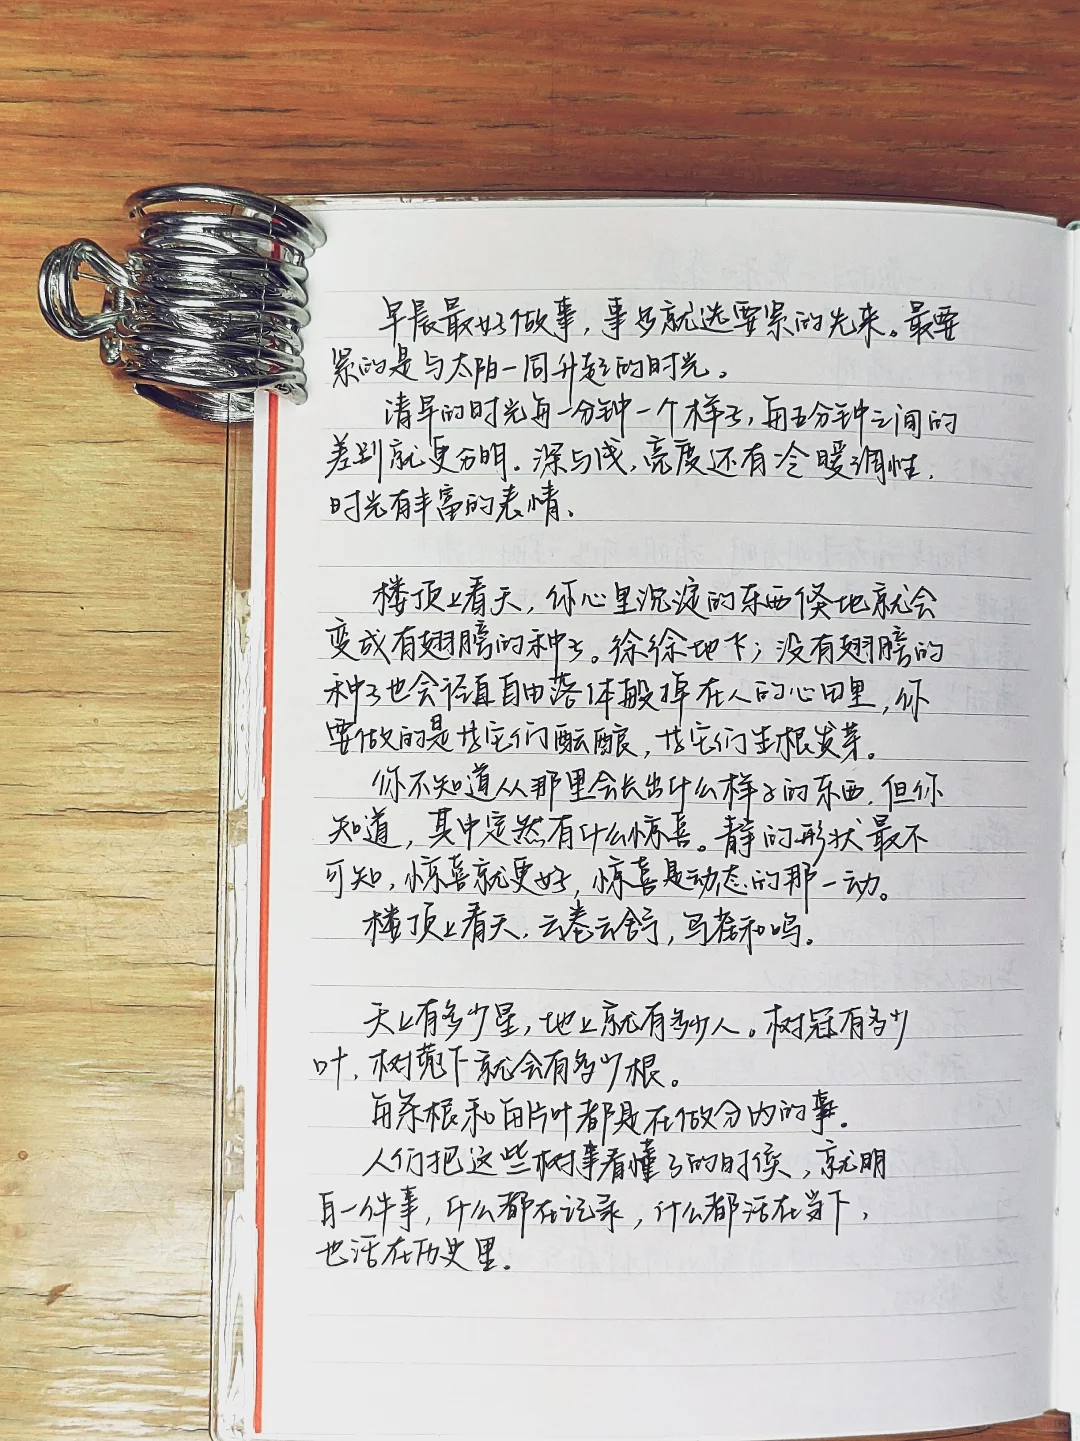 早晨最好做事，事多就选要紧的先来。最要
紧的是与太阳一同升起的时光。
清早的时光每一分钟一个样子，每五分钟之间的
差别就更分明。深与浅，亮度还有冷暖调性，
时光有丰富的表情、
楼顶上看天，你心里沉淀的东西倏地就会
变成有翅膀的种子。徐徐地下；没有翅膀的
种子也会径直自由落体般掉在人的心田里，你
要做的是等它们酝酿，等它们生根发芽。
你不知道从那里会长出什么样子的东西，但你
知道，其中定然有什么惊喜。静的形状最不
可知，惊喜就更好，惊喜是动态的那一动。
楼顶上看天，云卷云舒，写在和鸣。
天上有多少星，地上就有多少人。树冠有多少
叶，树蔸下就会有多少根。
每条根和每片叶都是在做分内的事。
人们把这些树事看懂了的时候，就明
白一件事，什么都在记录，什么都活在当下，
也活在历史里。